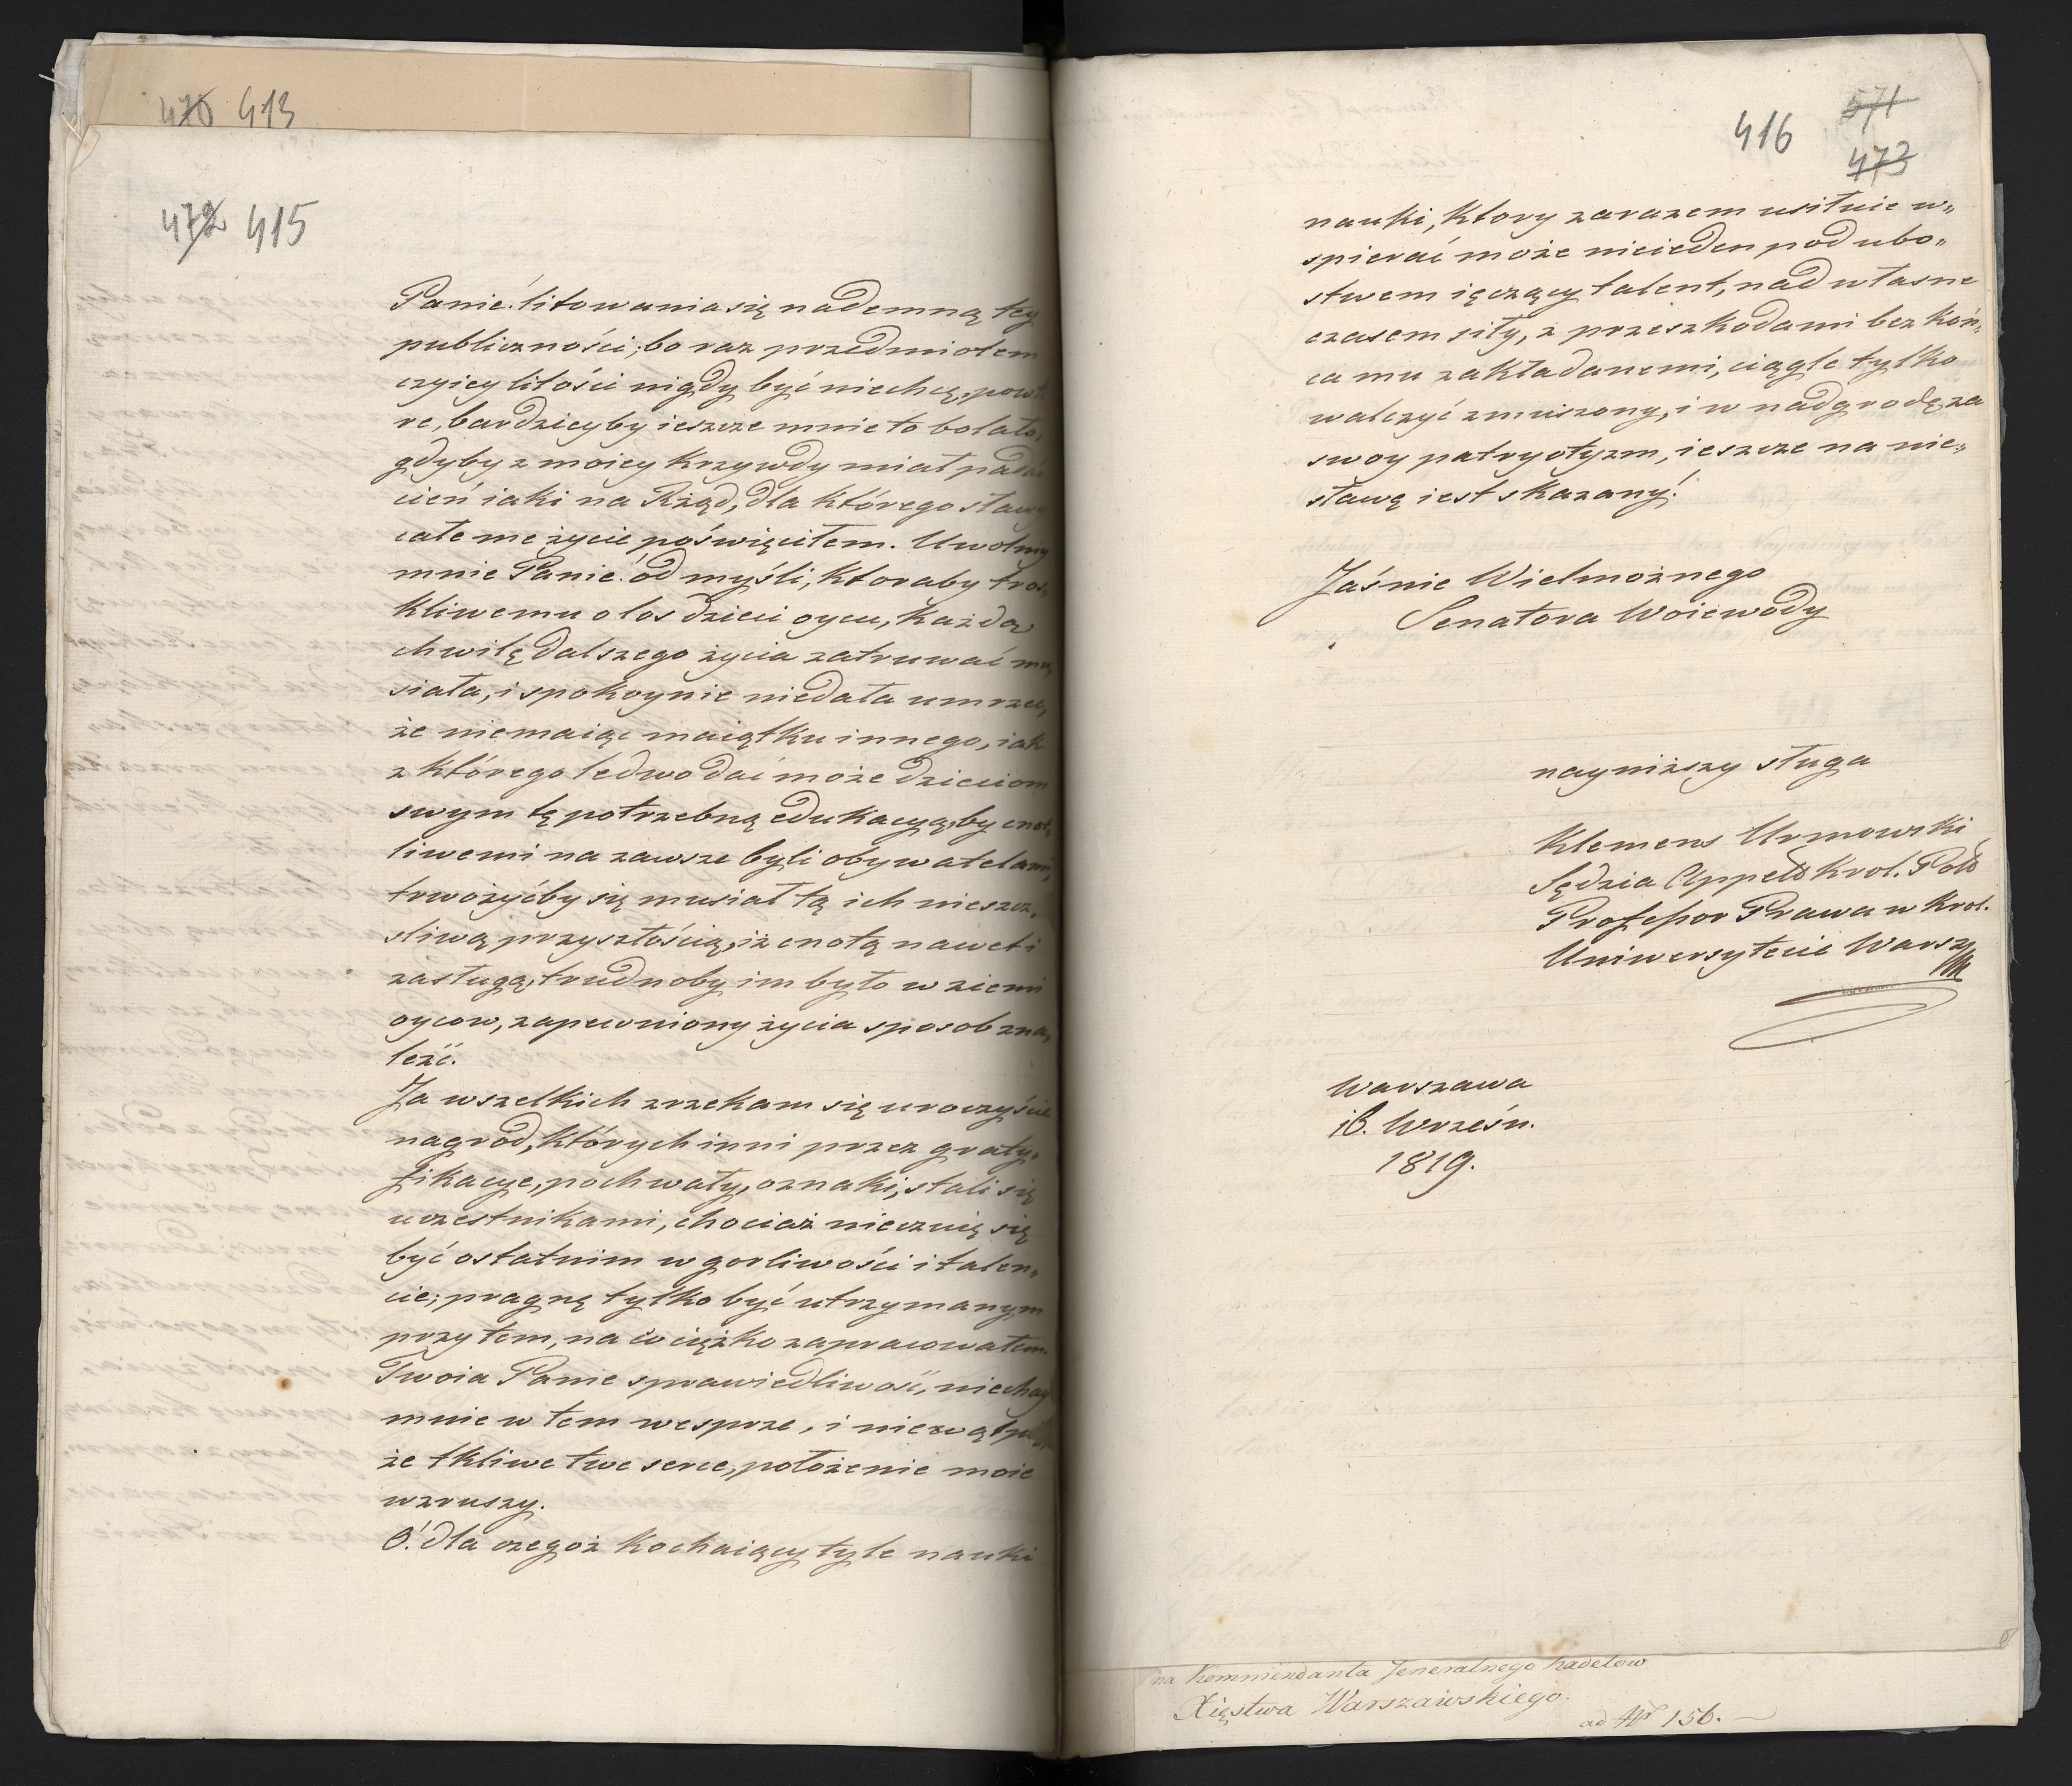 470 413
472 415
Panie! litowania się nademną tey
publiczności; bo raz przedmiotem
czyiey litości nigdy być niechcę, powt
re, bardzieyby ieszcze mnie to bolało,
gdyby z moiey krzywdy miał
cień iaki na Rząd, dla którego sławy
całe me życie poświęciłem. Uwolniy
mnie Panie! od myśli, ktoraby tros„
kliwemu o los dzieci oycu, każdą
chwilę dalszego życia zatruwać mu
siała, i spokoynie niedała umrzeć,
że niemaiąc maiątku innego, iak
z którego ledwo dać może dzieciom
swym tę potrzebną edukacyą, by cnot„
liwemi na zawsze byli obywatelami,
trwożyćby się musiał tą ich nieszczę„
śliwą przyszłością, iż cnotą nawet i
zasługą, trudnoby im było w ziemi
oycow, zapewniony życia sposob zna„
leźć.
Ja wszelkich zrzekam się uroczyście
nagrod, których inni przez graty„
fikacye, pochwały, oznaki, stali się
uczestnikami, chociaż nieczuię się
być ostatnim w gorliwości i talen„
cie; pragnę tylko być utrzymanym
przy tem, na co ciężko zapracowałem.
Twoia Panie sprawiedliwość, niechay
mnie w tem wesprze, i niewątpię
że tkliwe twe serce, położenie moie
wzruszy.
O! dla czegoż kochaiący tyle nauki
416 571
473
nauki, ktory zarazem usilnie w„
spierać może nieieden pod ubo„
stwem ięczący talent, nad własne
czasem siły, z przeszkodami bez koń„
ca mu zakładanemi, ciągle tylko
walczyć zmuszony, i w nadgrodę za
swoy patryotyzm, ieszcze na nie„
sławę iest skazany!
Jaśnie Wielmożnego
Senatora Woiewody
nayniższy sługa
Klemens Urmowski
Sędzia Appell Krol. Pols
Professor Prawa w Krol.
Uniwersytecie Warsz
Warszawa
16. Wrześn.
1819.
na Kommendanta Jeneralnego Kadetow
Xięstwa Warszawskiego.
ad Nr 156.